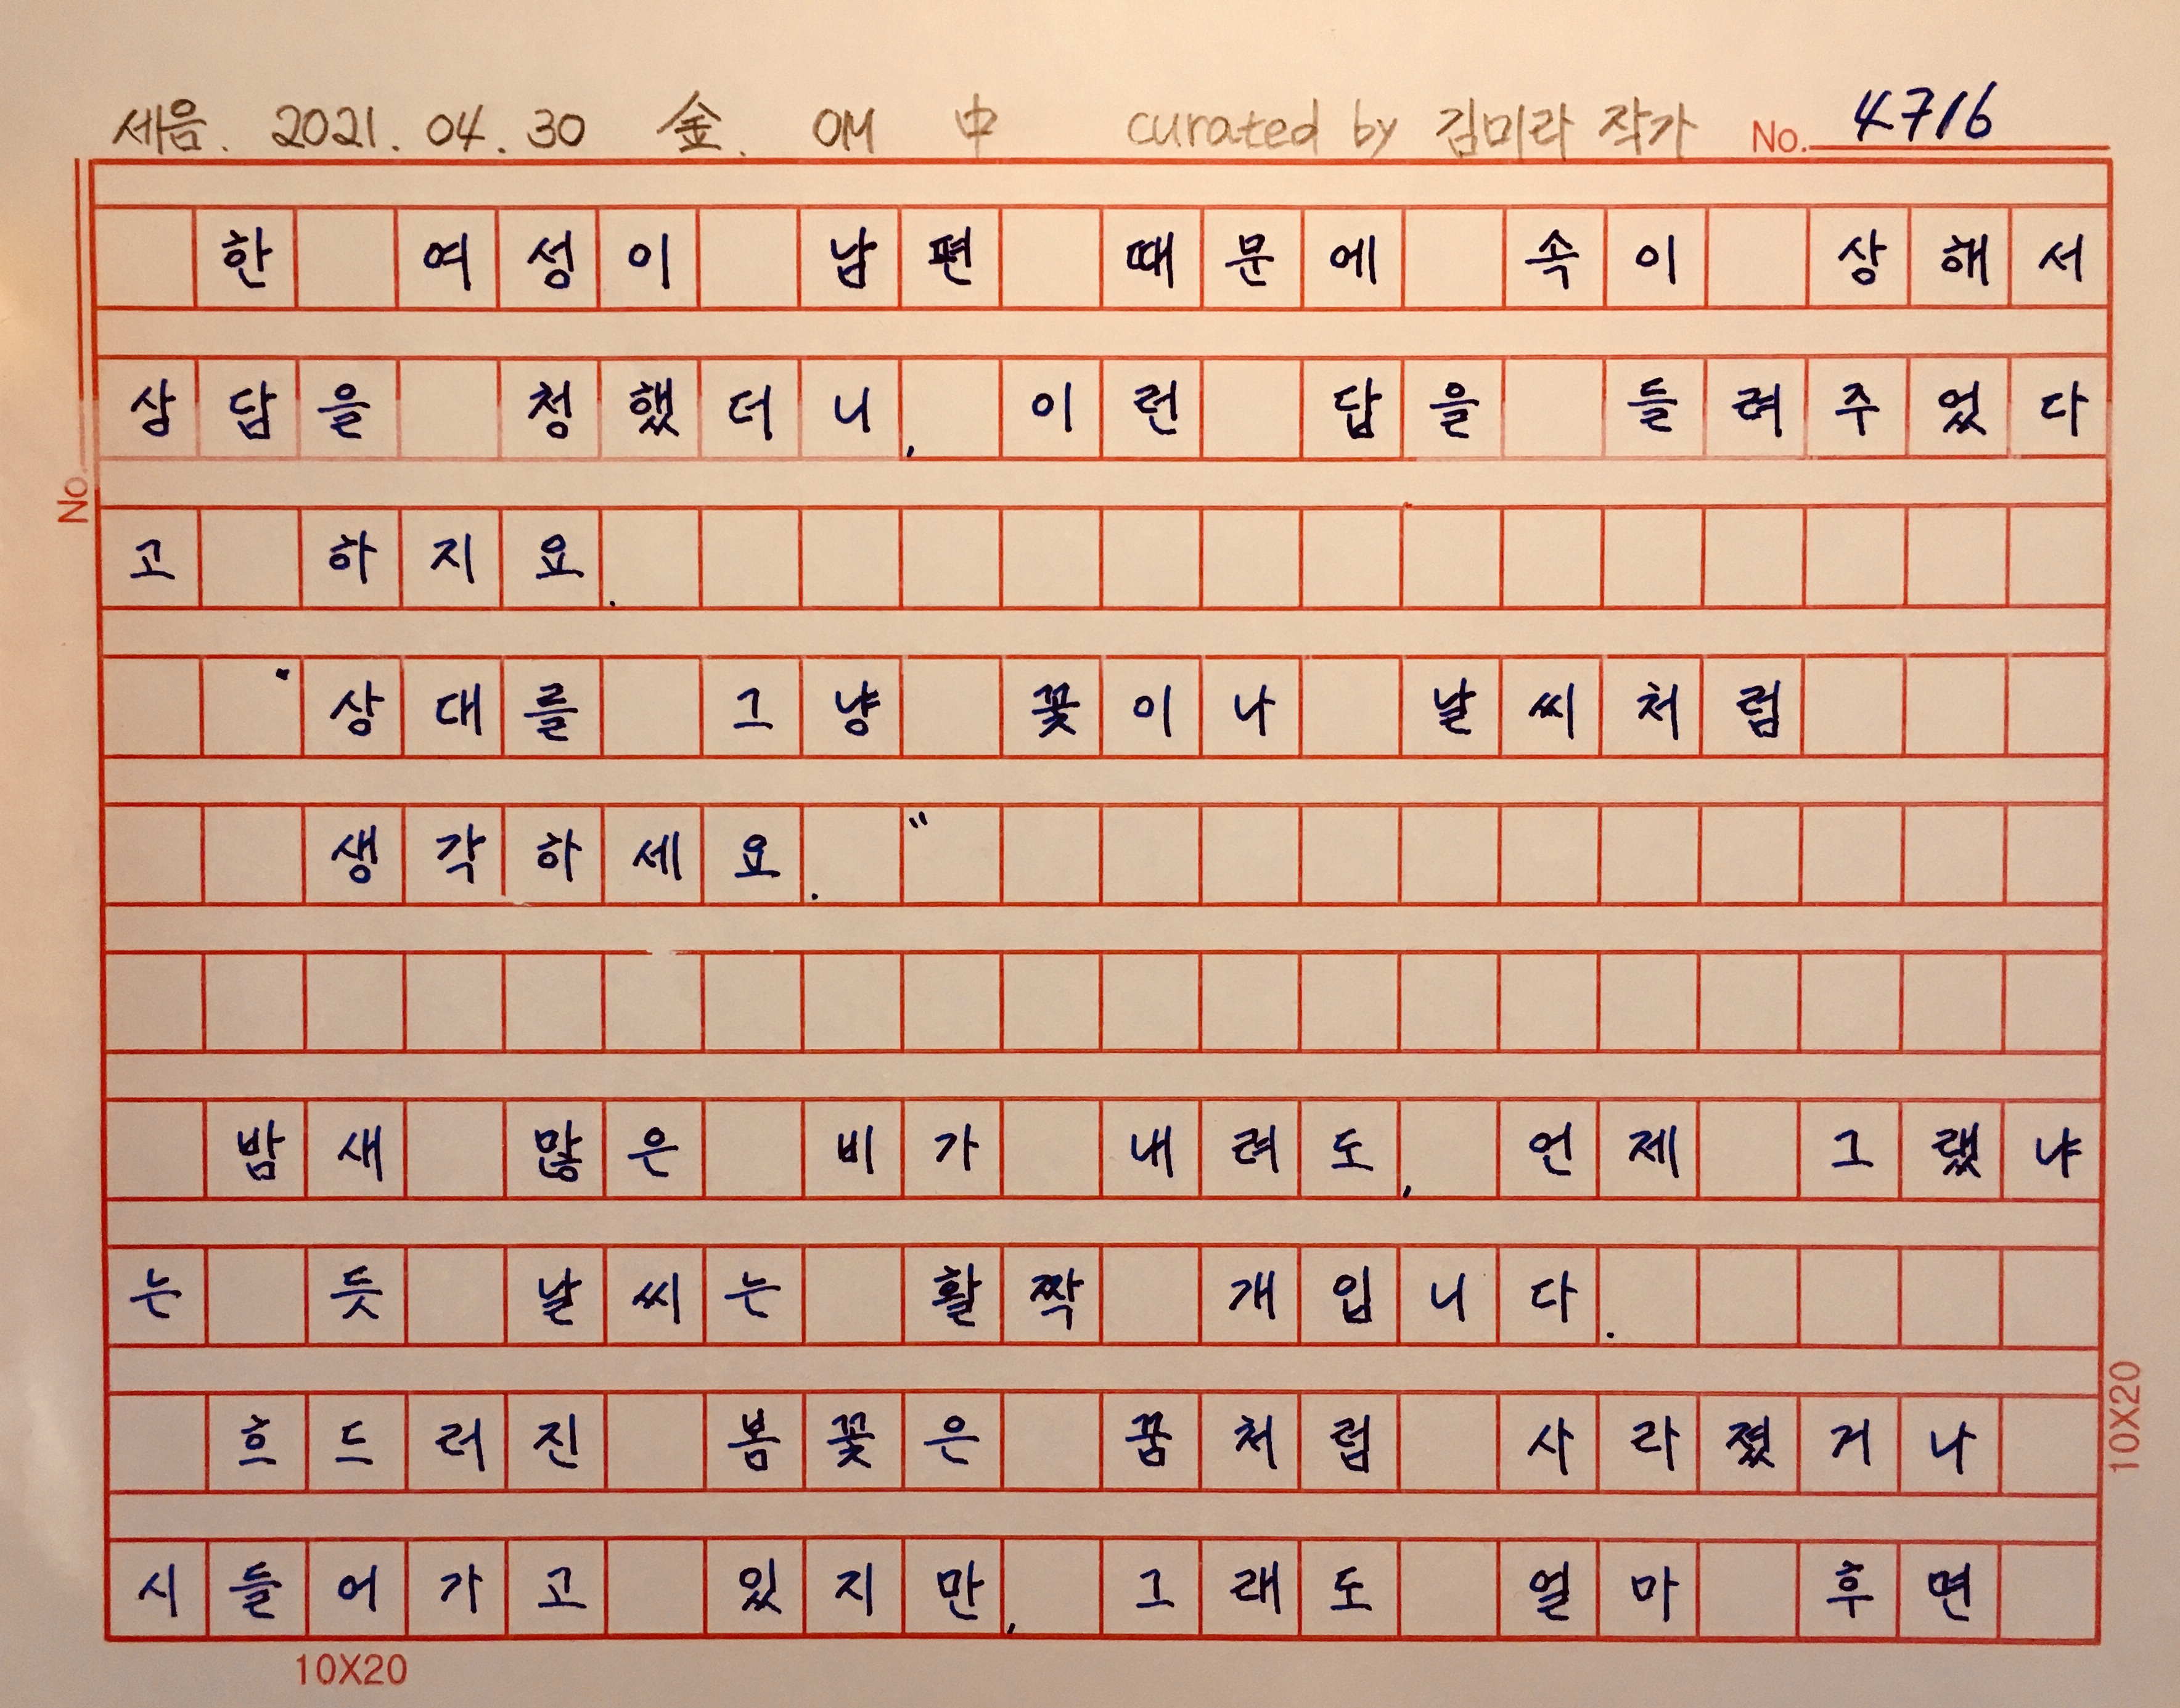 세음. 2021. 04. 30 金. OM 中 curated by 김미라 작가 No. 4716
한 여성이 남편 때문에 속이 상해서
상담을 청했더니, 이런 답을 들려주었다
고 하지요.
"상대를 그냥 꽃이나 날씨처럼
생각하세요."
밤새 많은 비가 내려도, 언제 그랬냐
는 듯 날씨는 활짝 개입니다.
흐드러진 봄꽃은 꿈처럼 사라졌거나
시들어가고 있지만, 그래도 얼마 후면
No.
10X20
10X20